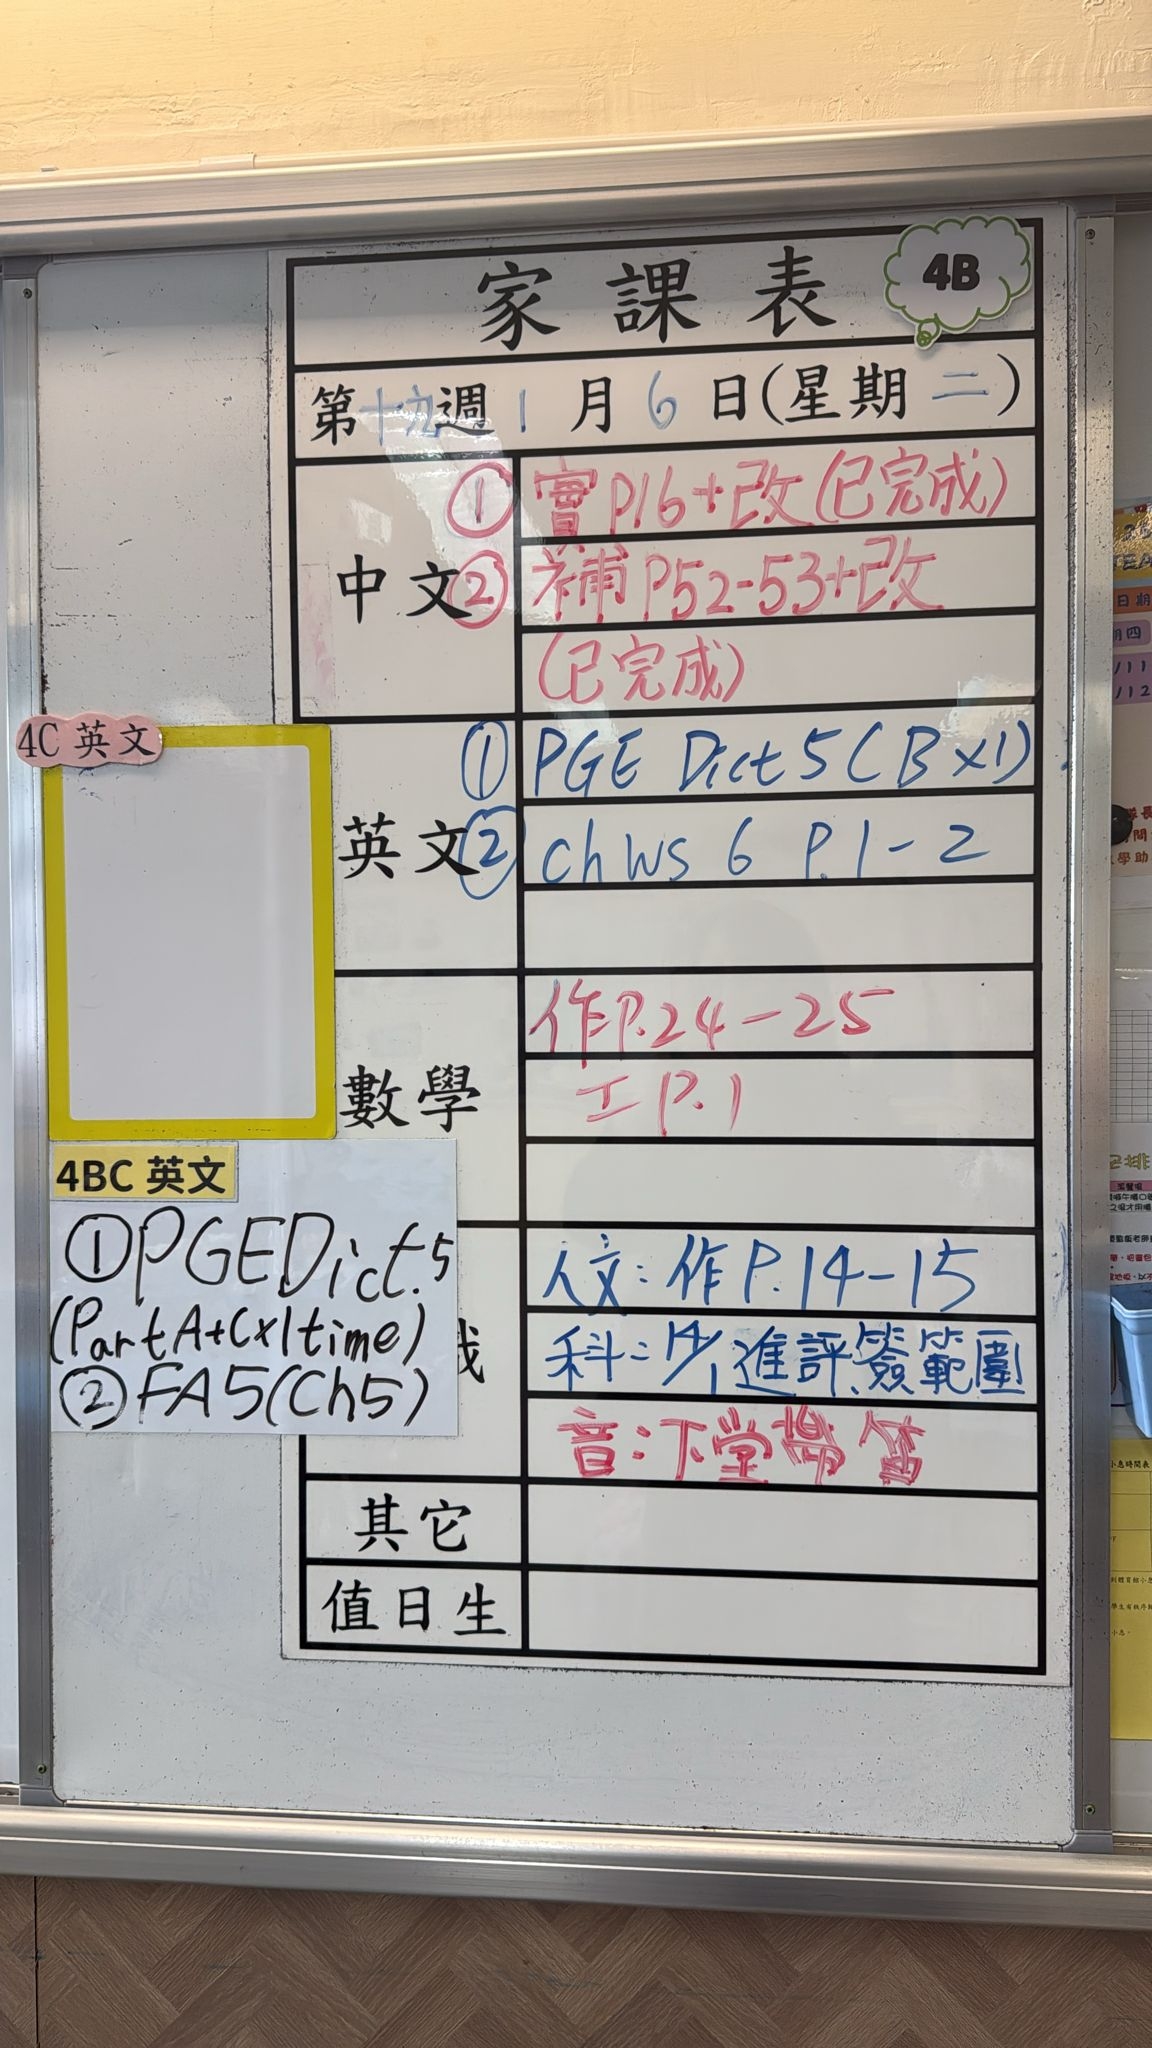 家課表
4B
第十九週1月6日(星期二)
中文
① 實P16+改(已完成)
② 補P52-53+改
(已完成)
英文
① PGE Dict 5 (B×1)
② ch WS 6 P.1-2
數學
作P.24-25
工P.1
人文:作P.14-15
科:14/1進評,簽範圍
音:下堂帶笛
其它
值日生
4C 英文
4BC 英文
① PGE Dict.5
(Part A+C×1time)
② FA5(Ch5)